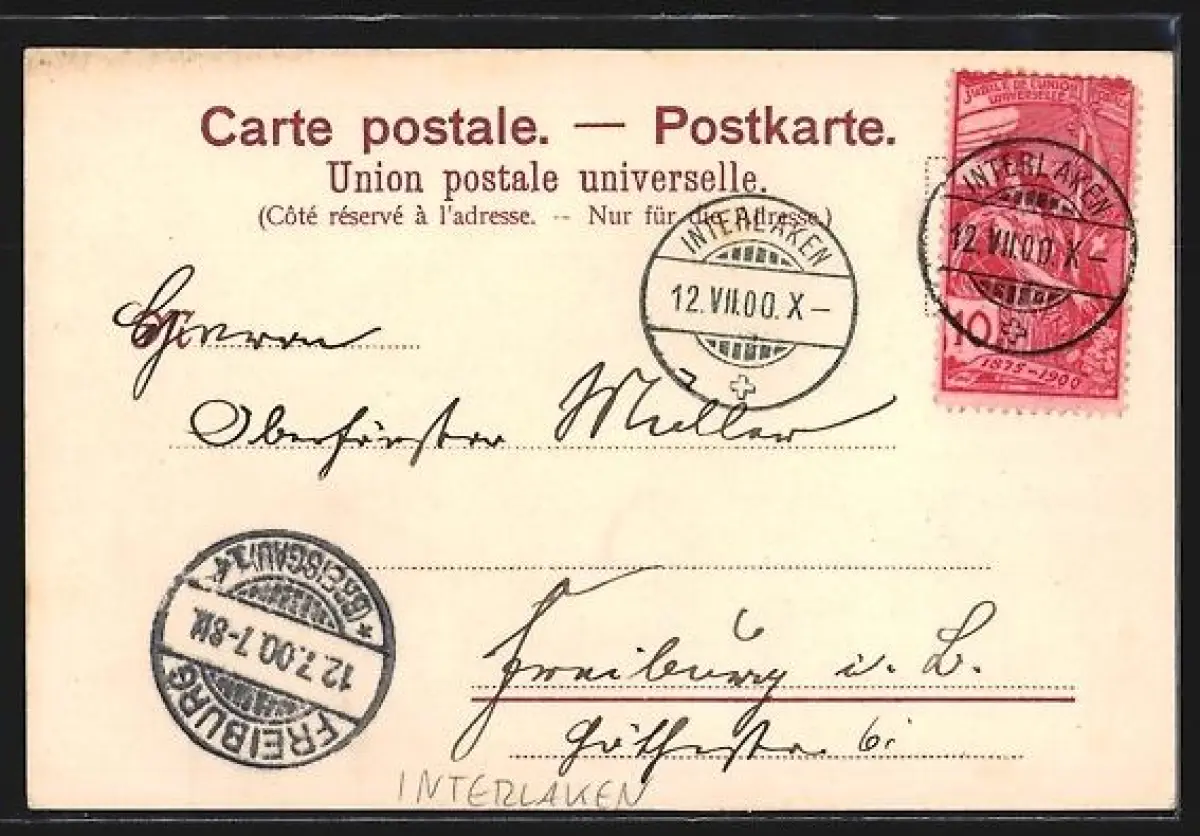 Carte postale. — Postkarte.
Union postale universelle.
(Côté réservé à l'adresse. -- Nur für die Adresse.)
JUBILÉ DE L'UNION POSTALE
UNIVERSELLE
10
1875-1900
INTERLAKEN
12.VII.00.X-
INTERLAKEN
12.VII.00.X-
Herrn
Oberförster Müller
Freiburg i. B.
Göthestr. 6.
FREIBURG
12.7.00.7-8N.
* (BREISGAU) 1 *
INTERLAKEN